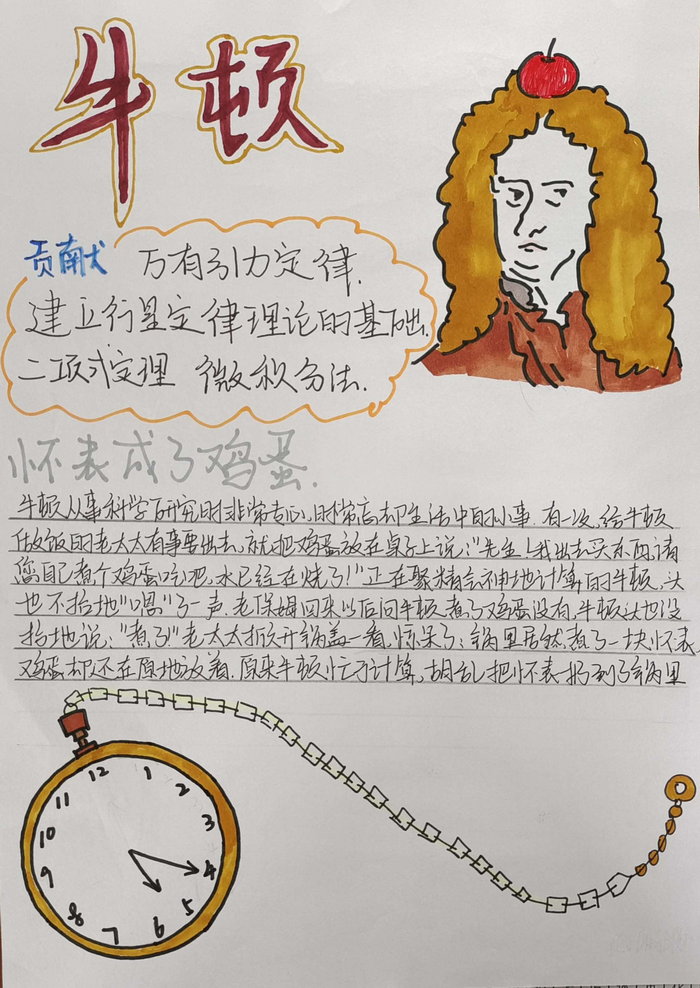 牛顿
贡献 万有引力定律.
建立行星定律理论的基础.
二项式定理 微积分法.
怀表成了鸡蛋.
牛顿从事科学研究时非常专心,时常忘却生活中的小事.有一次,给牛顿
做饭的老太太有事要出去,就把鸡蛋放在桌子上说:"先生!我出去买东西,请
您自己煮个鸡蛋吃吧,水已经在烧了!"正在聚精会神地计算的牛顿,头
也不抬地"嗯"了一声.老保姆回来以后问牛顿煮了鸡蛋没有,牛顿头也没
抬地说:"煮了!"老太太掀开锅盖一看,惊呆了:锅里居然煮了一块怀表,
鸡蛋却还在原地放着.原来牛顿忙于计算,胡乱把怀表扔到了锅里
12
1
2
3
4
5
6
7
8
9
10
11